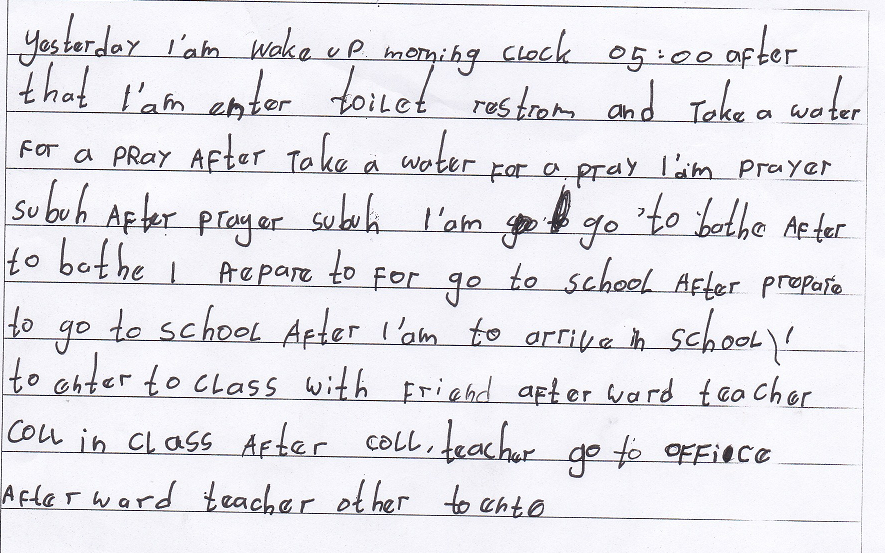 Yesterday I'am wake up morning clock 05:00 after
that I'am enter toilet restrom and Take a water
For a PRAY AFter Take a water For a pray I'am prayer
subuh AFter prayer subuh I'am go to bathe AFter
to bathe I Prepare to For go to school AFter prepare
to go to school AFter I'am to arrive in school I
to enter to class with Friend after ward teacher
coll in class AFter coll, teacher go to oFFioce
AFter ward teacher other to ente